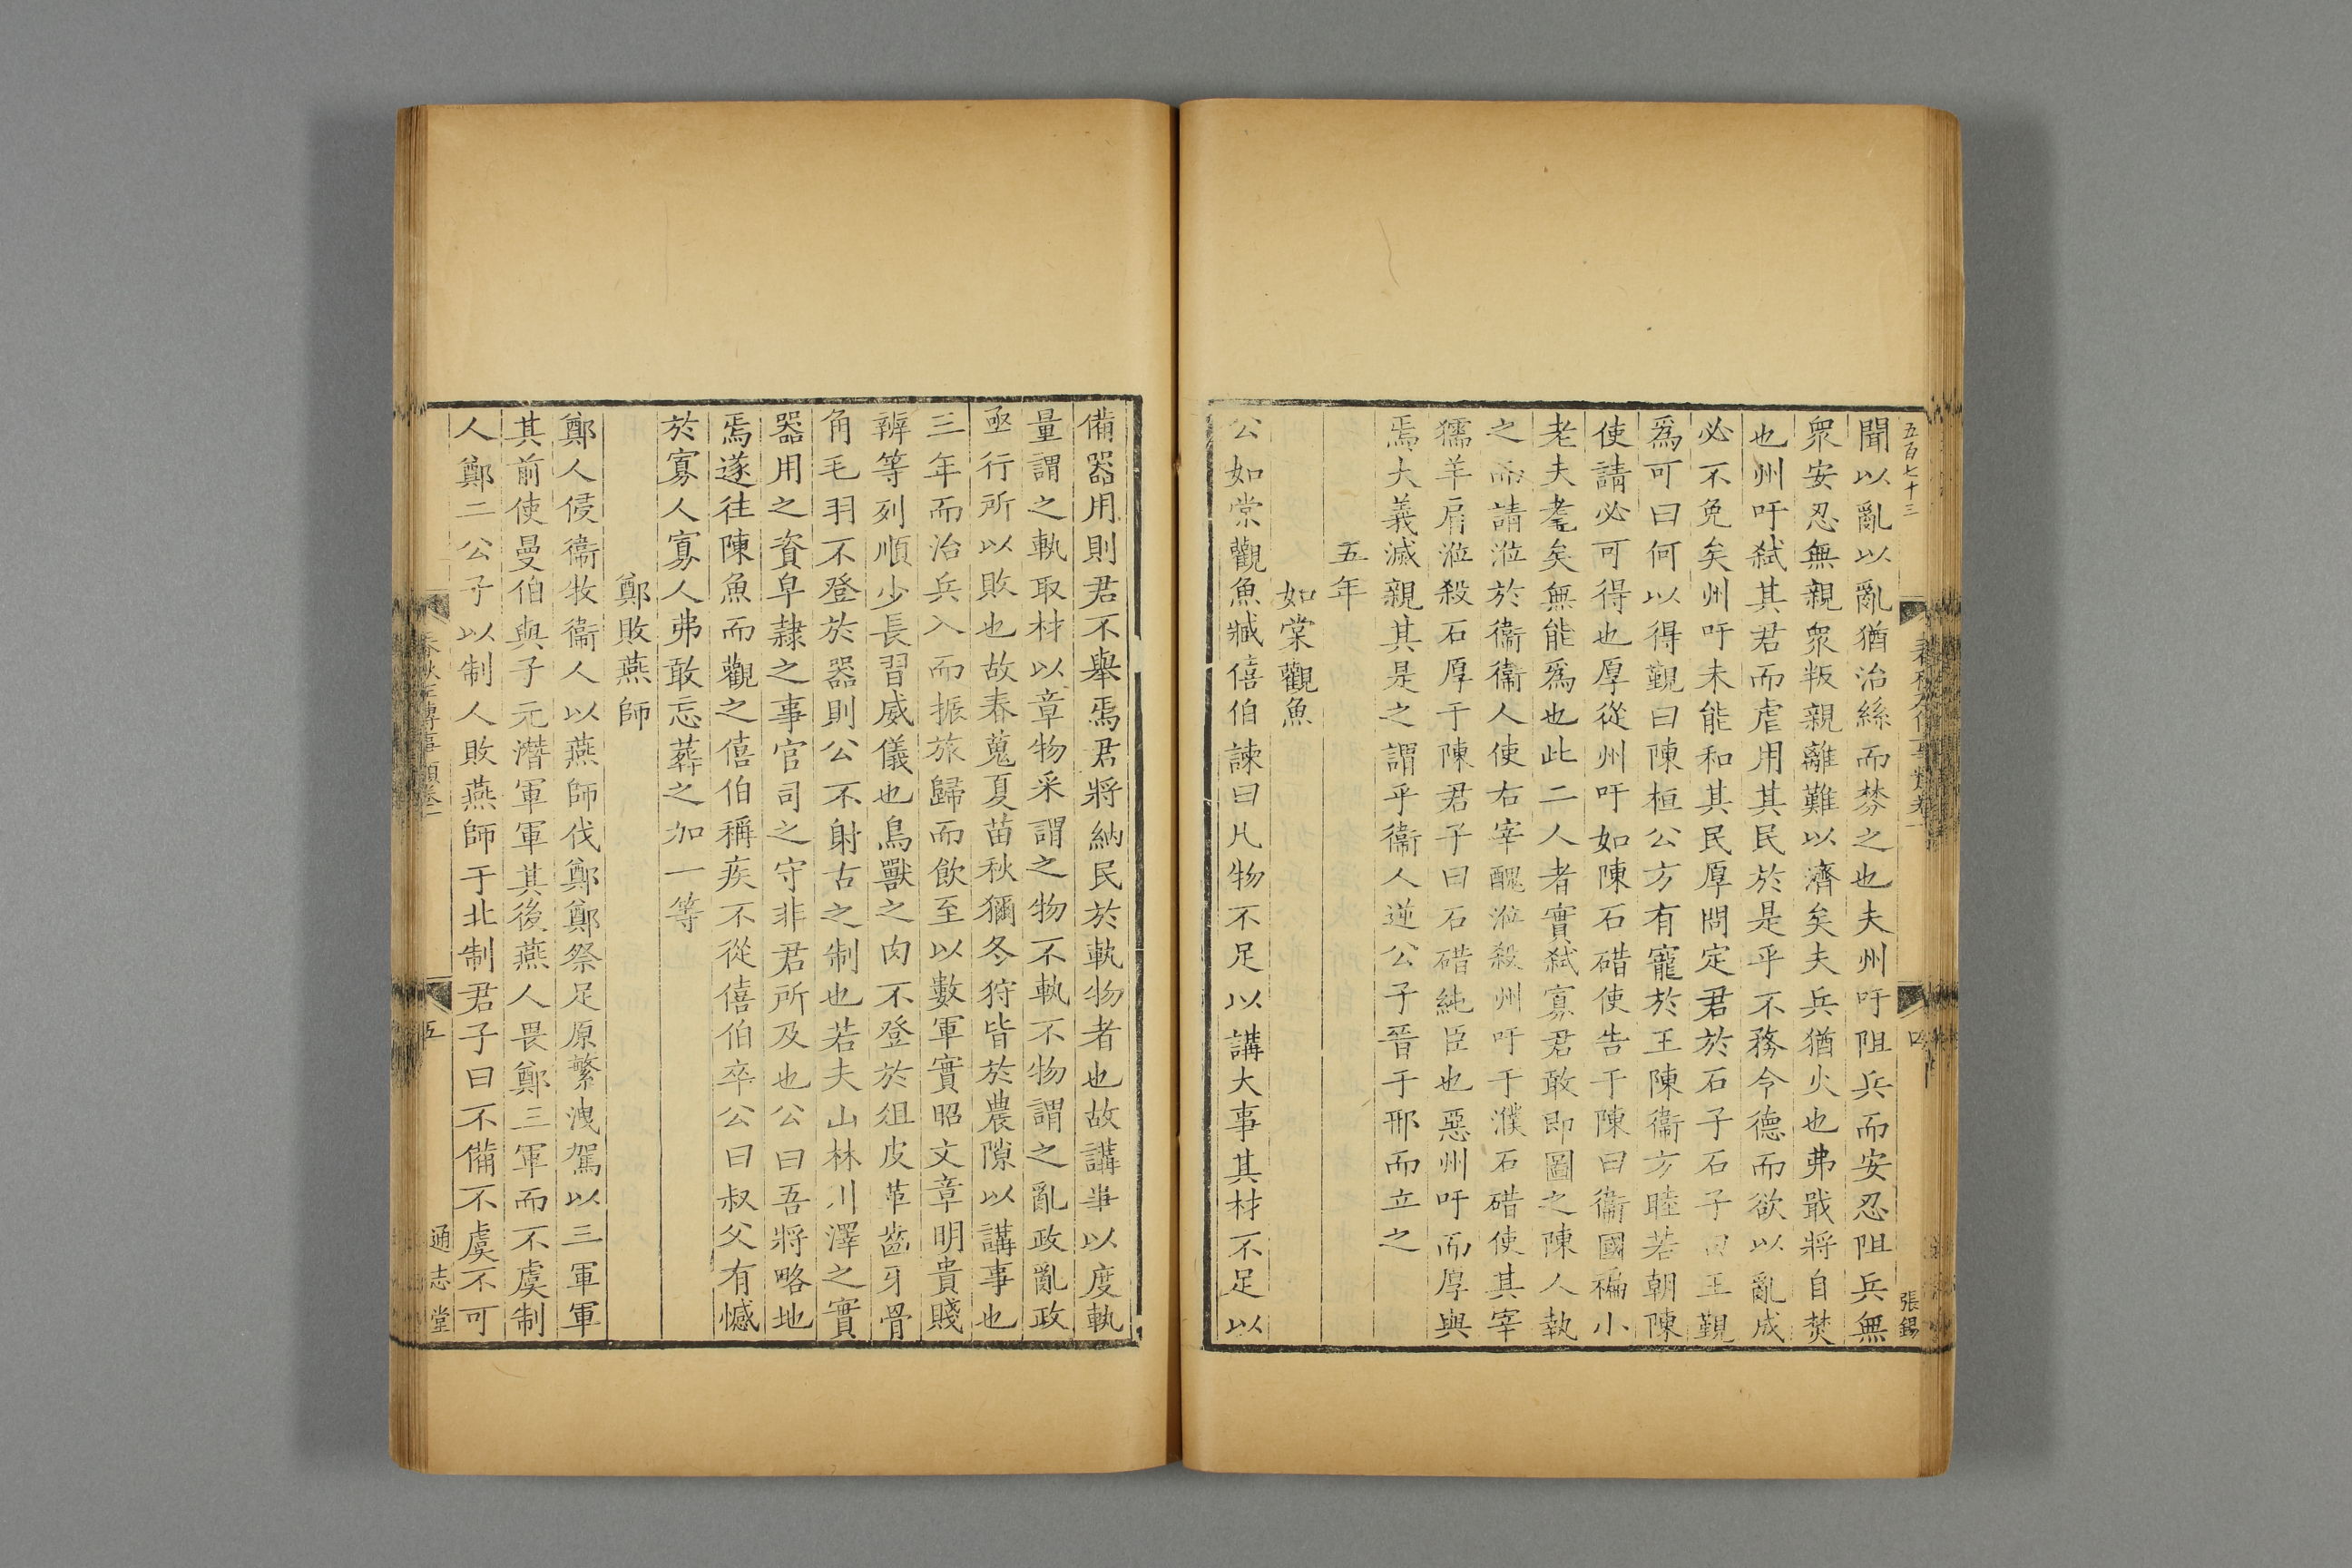 五百七十三
張錫
聞以亂以亂猶治絲而棼之也夫州吁阻兵而安忍阻兵無
衆安忍無親衆叛親離難以濟矣夫兵猶火也弗戢將自焚
也州吁弑其君而虐用其民於是乎不務令德而欲以亂成
必不免矣州吁未能和其民厚問定君於石子石子曰王覲
爲可曰何以得覲曰陳桓公方有寵於王陳衞方睦若朝陳
使請必可得也厚從州吁如陳石碏使告于陳曰衞國褊小
老夫耄矣無能爲也此二人者實弑寡君敢即圖之陳人執
之而請涖於衞衞人使右宰醜涖殺州吁于濮石碏使其宰
獳羊肩涖殺石厚于陳君子曰石碏純臣也惡州吁而厚與
焉大義滅親其是之謂乎衞人逆公子晉于邢而立之
五年
如棠觀魚
公如棠觀魚臧僖伯諫曰凡物不足以講大事其材不足以
備器用則君不舉焉君將納民於軌物者也故講事以度軌
量謂之軌取材以章物采謂之物不軌不物謂之亂政亂政
亟行所以敗也故春蒐夏苗秋獮冬狩皆於農隙以講事也
三年而治兵入而振旅歸而飲至以數軍實昭文章明貴賤
辨等列順少長習威儀也鳥獸之肉不登於俎皮革齒牙骨
角毛羽不登於器則公不射古之制也若夫山林川澤之實
器用之資皁隷之事官司之守非君所及也公曰吾將略地
焉遂往陳魚而觀之僖伯稱疾不從僖伯卒公曰叔父有憾
於寡人寡人弗敢忘葬之加一等
鄭敗燕師
鄭人侵衞牧衞人以燕師伐鄭鄭祭足原繁洩駕以三軍軍
其前使曼伯與子元潛軍軍其後燕人畏鄭三軍而不虞制
人鄭二公子以制人敗燕師于北制君子曰不備不虞不可
春秋左傳事類卷一
五
通志堂